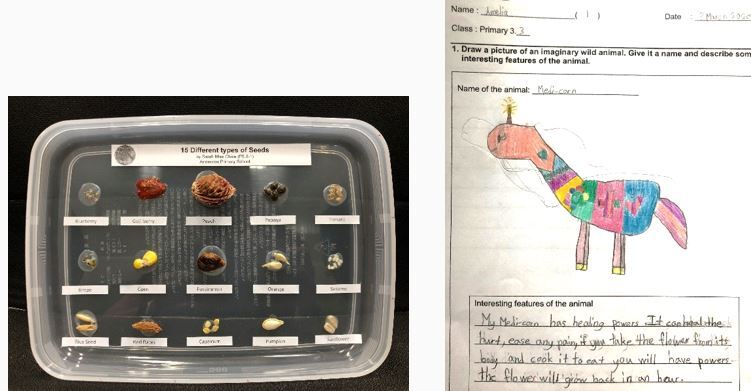 15 Different types of Seeds
Blueberry
Goji berry
Peach
Papaya
Tomato
Grape
Corn
Persimmon
Orange
Sesame
Rice Seed
Red Dates
Capsicum
Pumpkin
Sunflower
Name : Amelia ( 1 ) Date :
Class : Primary 3. 3
1. Draw a picture of an imaginary wild animal. Give it a name and describe som
interesting features of the animal.
Name of the animal: Meli-corn
Interesting features of the animal
My Meli-corn has healing powers. It can heal the
hurt, ease any pain, if you take the flower from its
body and cook it to eat you will have powers.
the flower will grow back in an hour.